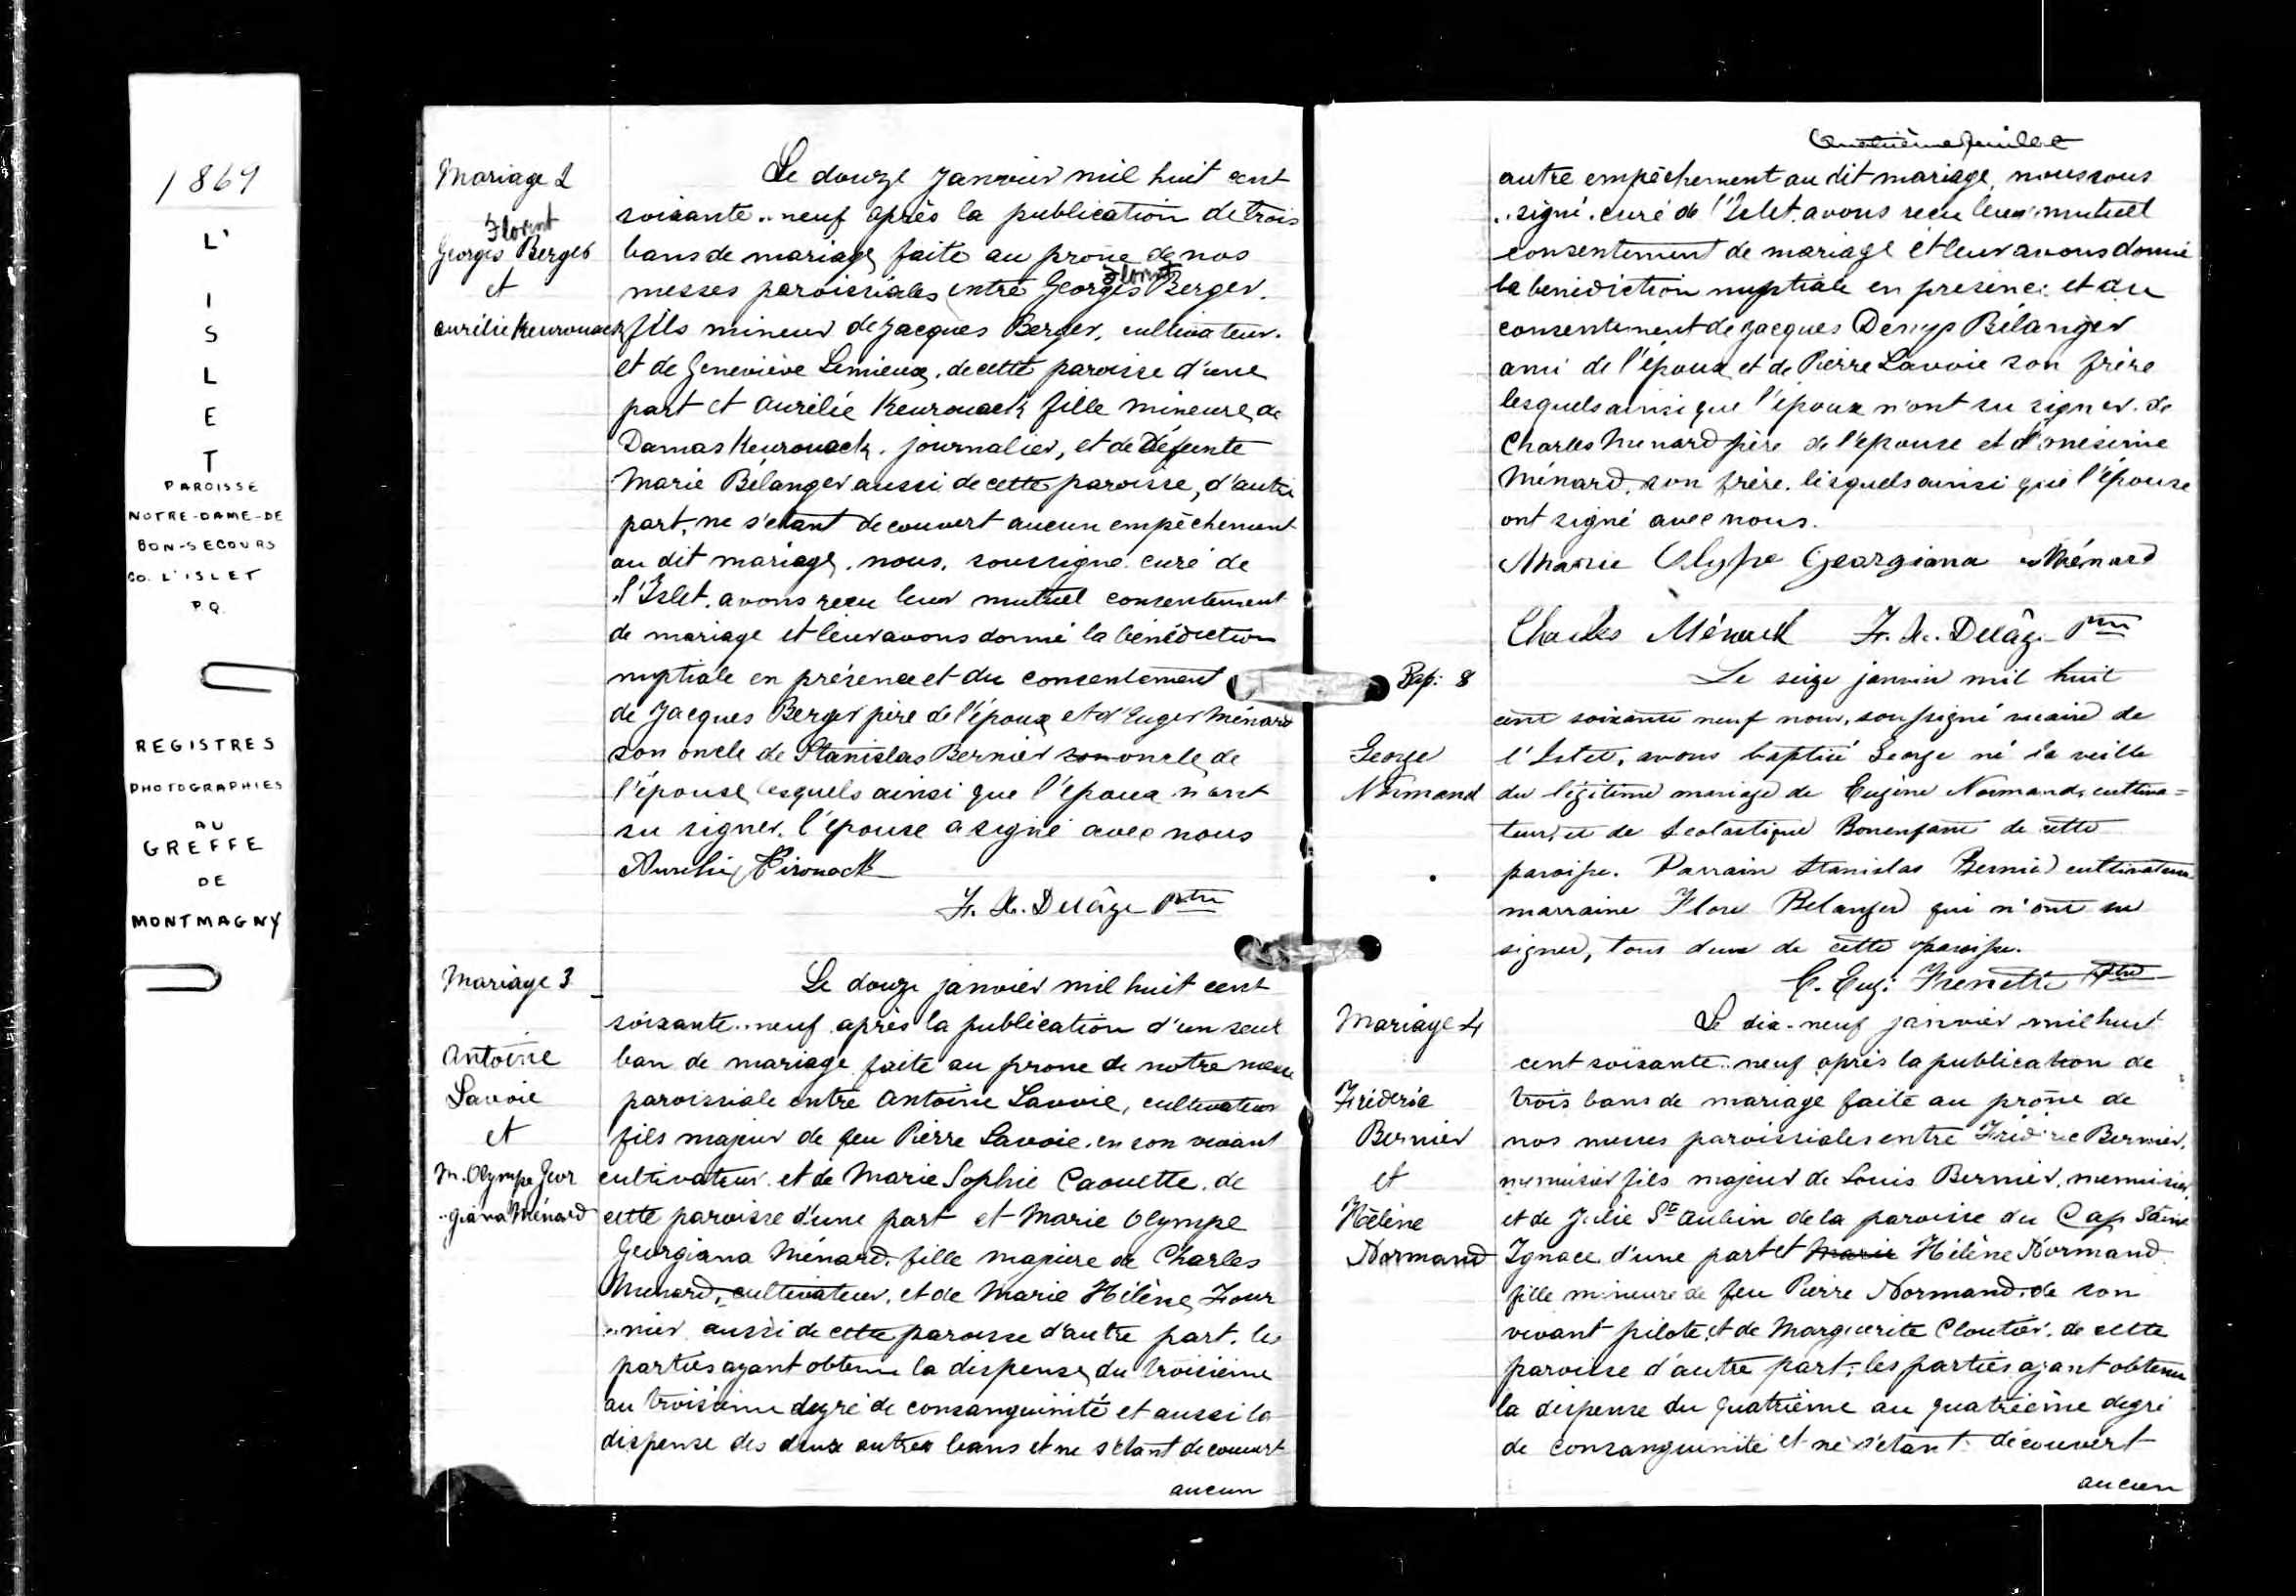 1869
L'
I
S
L
E
T
PAROISSE
NOTRE-DAME-DE
BON-SECOURS
CO. L'ISLET
P.Q.
REGISTRES
PHOTOGRAPHIES
AU
GREFFE
DE
MONTMAGNY
Mariage 2
Florent
Georges Berger
et
aurélie Keurouack
Le douze janvier mil huit cent
soixante..neuf après la publication de trois
bans de mariage, faite au prone de nos
Florent
messes paroissiales entre Georges Berger.
fils mineur de Jacques Berger, cultivateur.
et de Geneviève Lemieux, de cette paroisse d'une
part et aurélie Keurouack fille mineure, de
Damas Keurouack. journalier, et de Défunte
Marie Bélanger aussi de cette paroisse, d'autre
part, ne s'etant decouvert aucun empêchement
au dit mariage, nous, soussigné curé de
l'Islet. avons reçu leur mutuel consentement
de mariage et leur avons donné la bénédiction
nuptiale en présence et du consentement
de Jacques Berger père de l'époux et d'Euger Ménard
son oncle de Stanislas Bernier son oncle, de
l'épouse, lesquels ainsi que l'époux n'ont
su signer. l'épouse a signé avec nous
Aurelie Kirouack
F. X. Delâge Ptre
Mariage 3
Antoine
Lavoie
et
M. Olympe Geor
..giana Ménard
Le douze janvier mil huit cent
soixante..neuf après la publication d'un seul
ban de mariage faite au prone de notre messe
paroissiale entre Antoine Lavoie, cultivateur
fils majeur de feu Pierre Lavoie. en son vivant
cultivateur. et de Marie Sophie Caouette. de
cette paroisse d'une part et Marie Olympe
Georgiana Ménard. fille majeure de Charles
Menard, cultivateur, et de Marie Hélène, Four
..nier aussi de cette paroisse d'autre part. les
parties ayant obtenu la dispense, du troisieme
au troisieme degré de consanguinité et aussi la
dispense des deux autres bans et ne s'étant decouvert
aucun
Quatrième feuillet
autre empêchement au dit mariage, nous sous
..signé. curé de l'Islet. avons reçu leur mutuel
consentement de mariage et leur avons donné
la bénédiction nuptiale en presence et du
consentement de Jacques Denys Bélanger
ami de l'époux, et de Pierre Lavoie son frère
lesquels ainsi que l'époux n'ont su signer. de
Charles Menard père de l'épouse et d'onésime
Ménard. son frère. lesquels ainsi que l'épouse
ont signé avec nous.
Marie Olympe Georgiana Ménard
Charles Ménard F. X. Delâge Ptre
Bap: 8
George
Normand
Le seize janvier mil huit
cent soixante neuf nous, soussigné vicaire de
l'Islet, avons baptisé George né la veille
du légitime mariage de Eugène Normand, cultiva=
teur, et de Scolastique Bonenfant de cette
paroisse. Parrain Stanislas Bernier cultivateur
marraine Flore Belanger qui n'ont su
signer, tous deux de cette paroisse.
C. Eug: Frenette Ptre
Mariage 4
Fréderic
Bernier
et
Hélène
Normand
Le dix-neuf janvier mil huit
cent soixante..neuf après la publication de
trois bans de mariage faite au prône de
nos messes paroissiales entre Fréderic Bernier.
menuisier fils majeur de Louis Bernier, menuisier,
et de Julie St Aubin de la paroisse du Cap Saint
Ignace d'une part et Marie Hélène Normand
fille mineure de feu Pierre Normand. de son
vivant pilote, et de Marguerite Cloutier. de cette
paroisse d'autre part; les parties ayant obtenu
la dispense du quatrième au quatrième degré
de consanguinité et ne s'etant découvert
aucun